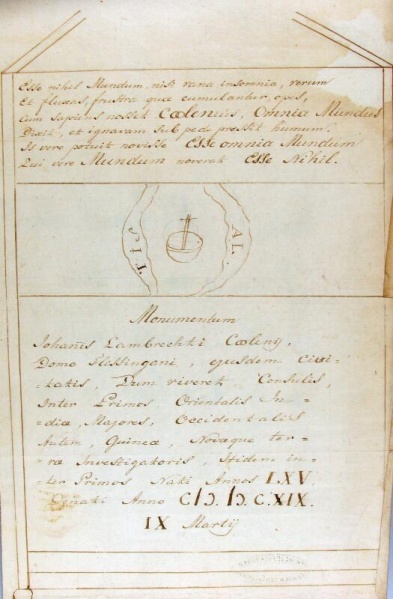 Esse nihil Mundum, nisi vana insomnia, rerum
Et fluxas, frustra quæ cumulantur, opes,
Cum sapius nosset Coolenius, Omnia Mundus
Dixit, et ignavam sub pede pressit humum.
Is vere potuit novisse Esse omnia Mundum
Qui vere Mundum noverat Esse Nihil.
TIC AL
Monumentum
Johanis Lambrechti Cooleny,
Domo Flissingani, ejusdem Civi-
-tatis, Dum viveret, Consulis,
Inter Primos Orientalis In-
-diæ, Majores, Occidentalis
Autem, Guineæ, Novæque ter-
-ræ Investigatoris, Itidem in-
-ter Primos Nati Annos LXV
Denati Anno CIↃ. IↃ. C. XIX.
IX Martij